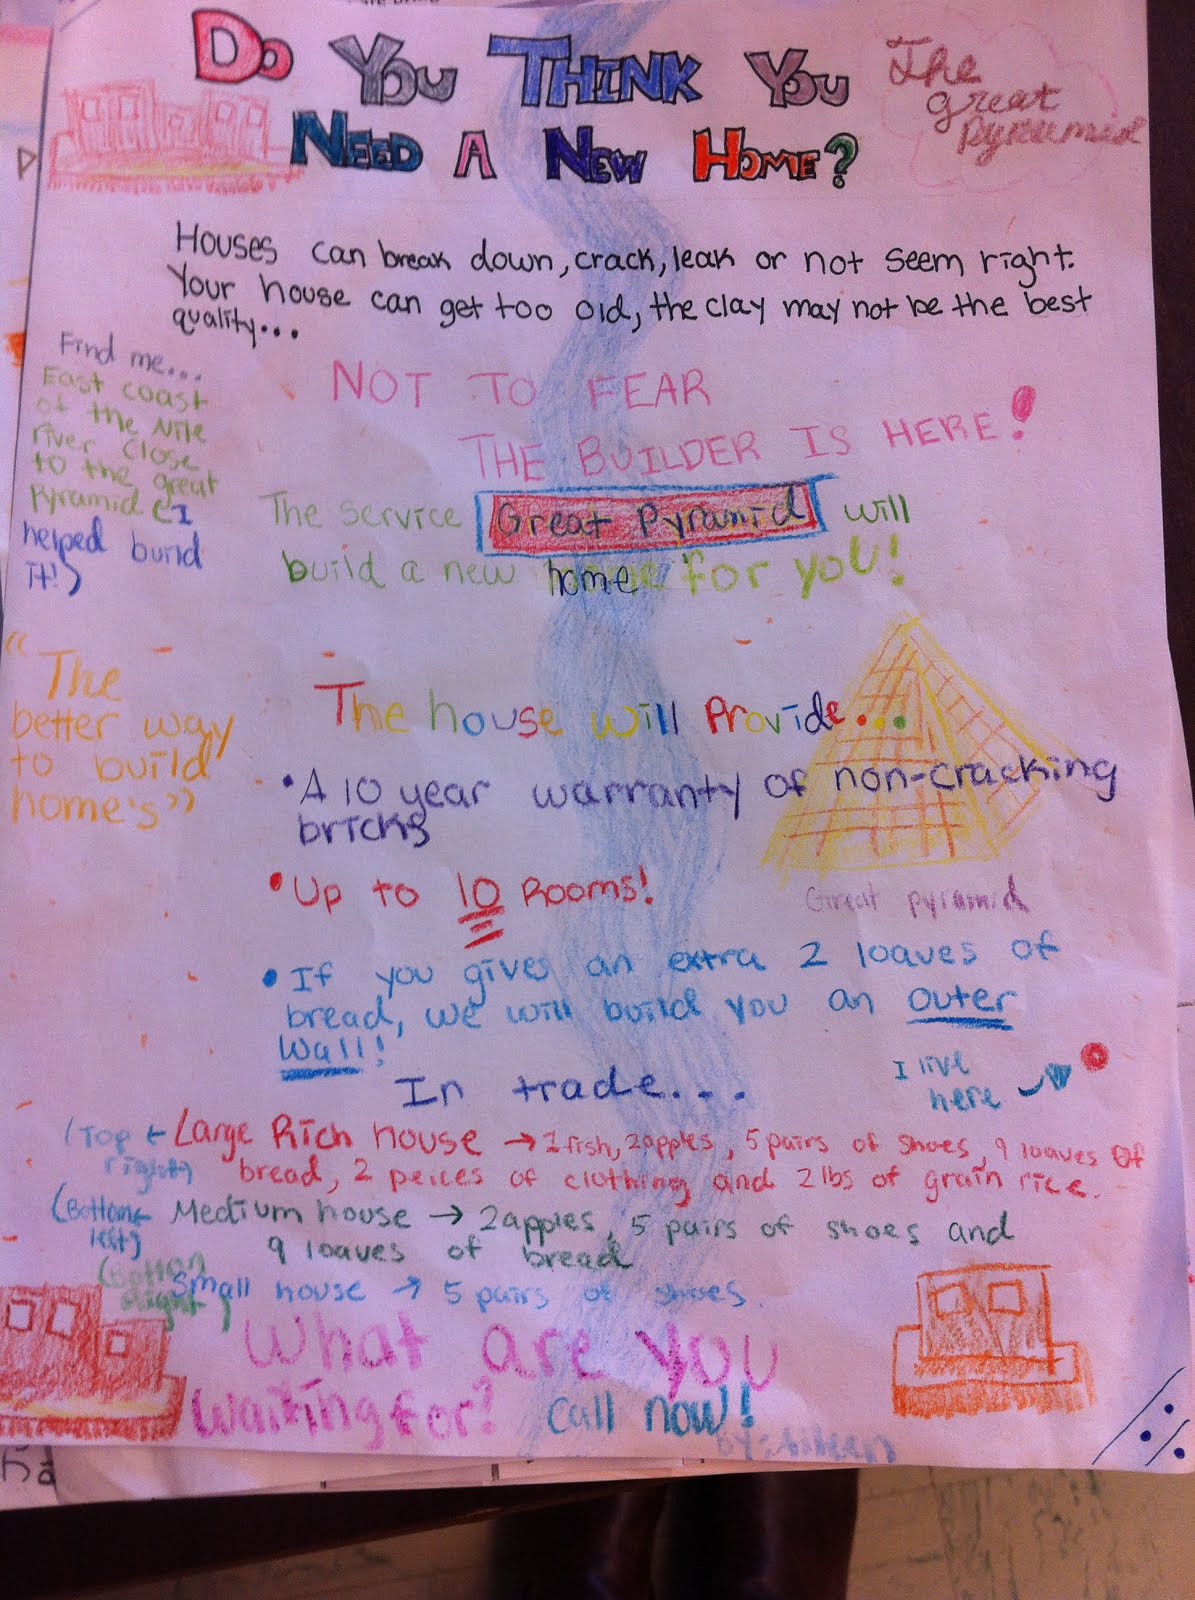 DO YOU THINK YOU
NEED A NEW HOME?
The
great
Pyramid
Houses can break down, crack, leak or not seem right.
Your house can get too old, the clay may not be the best
quality...
Find me...
East coast
of the Nile
river close
to the great
Pyramid (I
helped build
it!)
NOT TO FEAR
THE BUILDER IS HERE!
The service Great Pyramid will
build a new home for you!
"The
better way
to build
home's"
The house will Provide...
• A 10 year warranty of non-cracking
bricks
Great pyramid
• Up to 10 Rooms!
• If you give an extra 2 loaves of
bread, we will build you an outer
wall!
I live
here
In trade...
(Top ← Large Rich house → 1 fish, 2 apples, 5 pairs of shoes, 9 loaves of
right) bread, 2 peices of clothing and 2 lbs of grain rice.
(Bottom ← Medium house → 2 apples, 5 pairs of shoes and
left) 9 loaves of bread
(Bottom Small house → 5 pairs of shoes.
Right)
What are you
waiting for? Call now!
by: